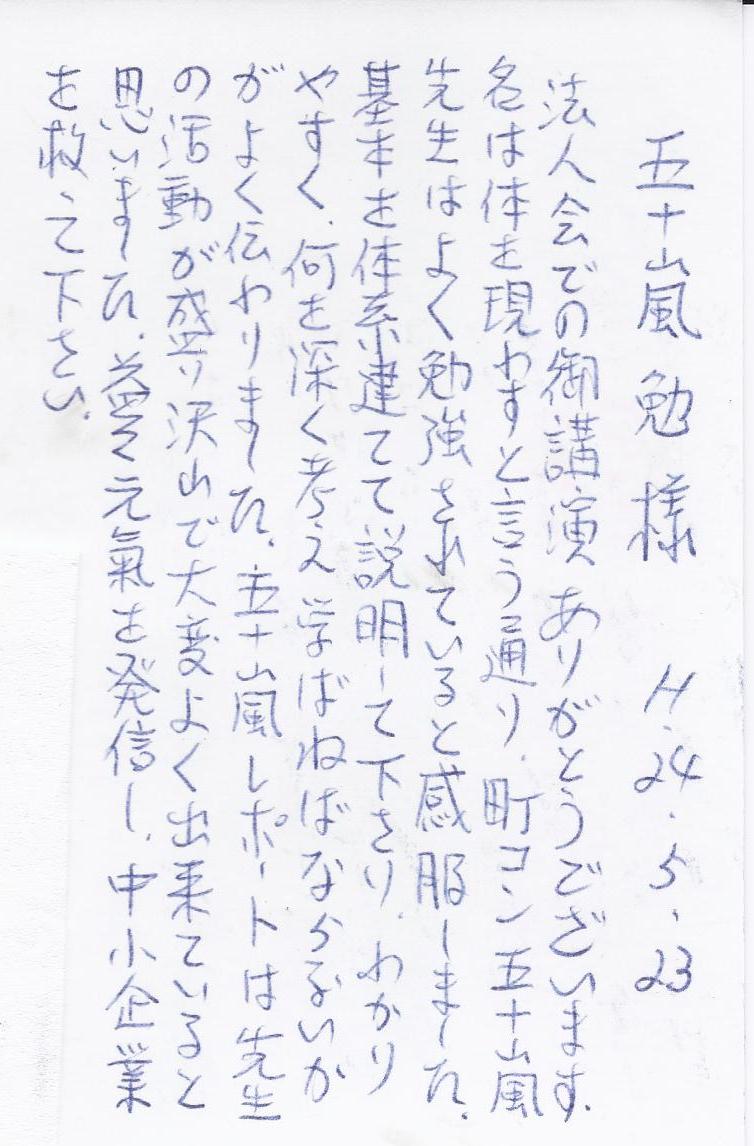 五十嵐勉様 H.24.5.23
法人会での御講演ありがとうございます.
名は体を現わすと言う通り.町コン五十嵐
先生はよく勉強されていると感服しました.
基本を体系建てて説明して下さり.わかり
やすく.何を深く考え学ばねばならないか
がよく伝わりました.五十嵐レポートは先生
の活動が盛り沢山で大変よく出来ていると
思いました.益々元氣を発信し.中小企業
を救って下さい.